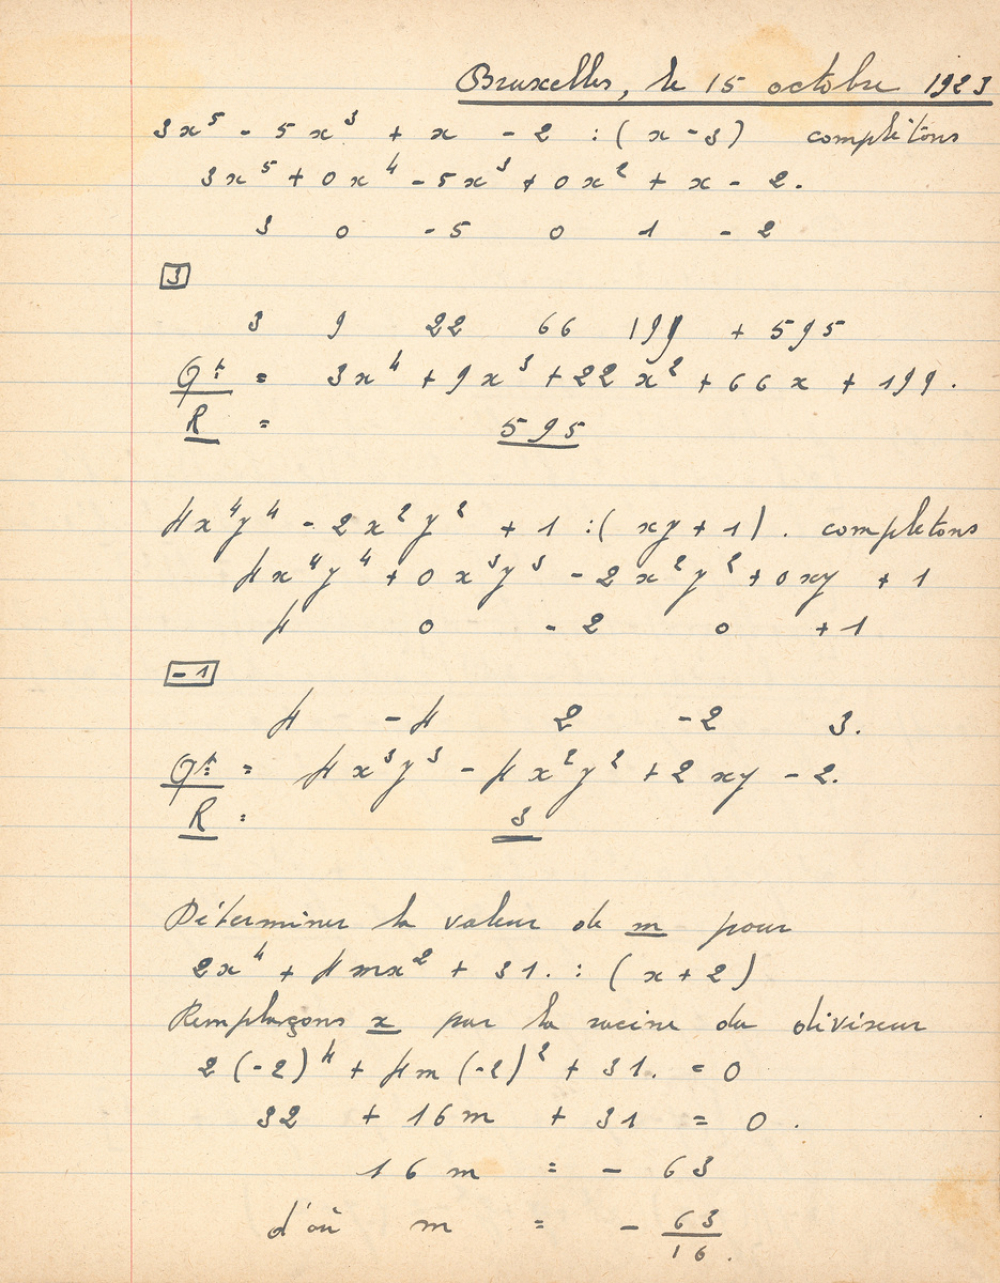 Bruxelles, le 15 octobre 1923
3x⁵ - 5x³ + x - 2 : (x - 3) complétons
3x⁵ + 0x⁴ - 5x³ + 0x² + x - 2.
3 0 - 5 0 1 - 2
3
3 9 22 66 199 + 595
Qt: = 3x⁴ + 9x³ + 22x² + 66x + 199.
R = 595
4x⁴y⁴ - 2x²y² + 1 : (xy + 1). completons
4x⁴y⁴ + 0x³y³ - 2x²y² + 0xy + 1
4 0 - 2 0 + 1
- 1
4 - 4 2 - 2 3.
Qt: = 4x³y³ - 4x²y² + 2xy - 2.
R : 3
Déterminer la valeur de m pour
2x⁴ + 4mx² + 31. : (x + 2)
Remplaçons x par la racine du diviseur
2(-2)⁴ + 4m(-2)² + 31. = 0
32 + 16m + 31 = 0.
16m = - 63
d'où m = - 63/16.